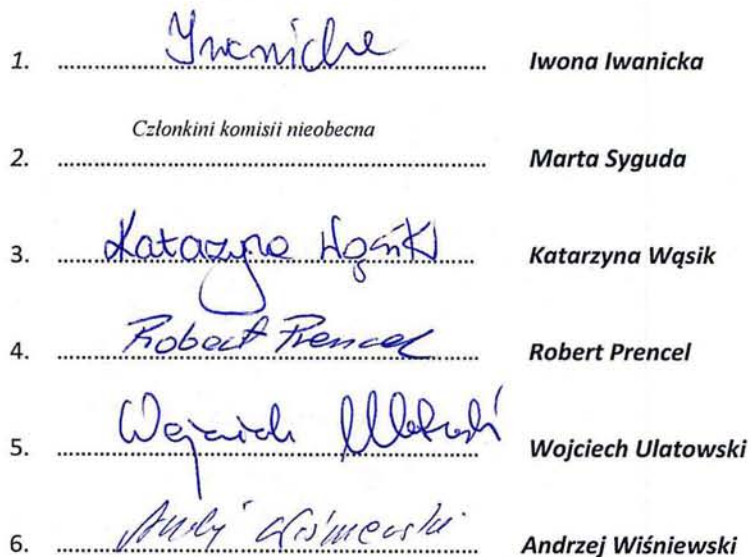 1. Iwanicka Iwona Iwanicka
Członkini komisji nieobecna
2. Marta Syguda
3. Katarzyna Wąsik Katarzyna Wąsik
4. Robert Prencel Robert Prencel
5. Wojciech Ulatowski Wojciech Ulatowski
6. Andrzej Wiśniewski Andrzej Wiśniewski